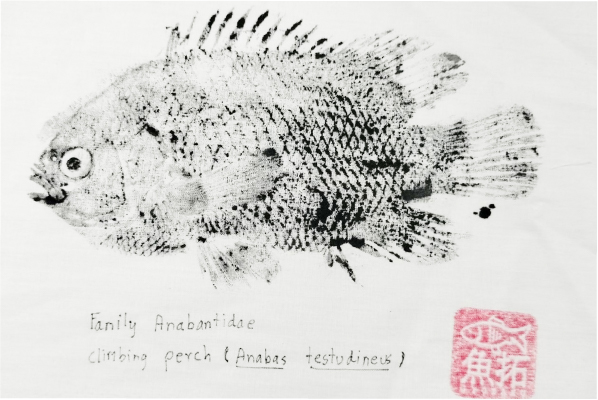 Family Anabantidae
climbing perch (Anabas testudineus)
魚拓